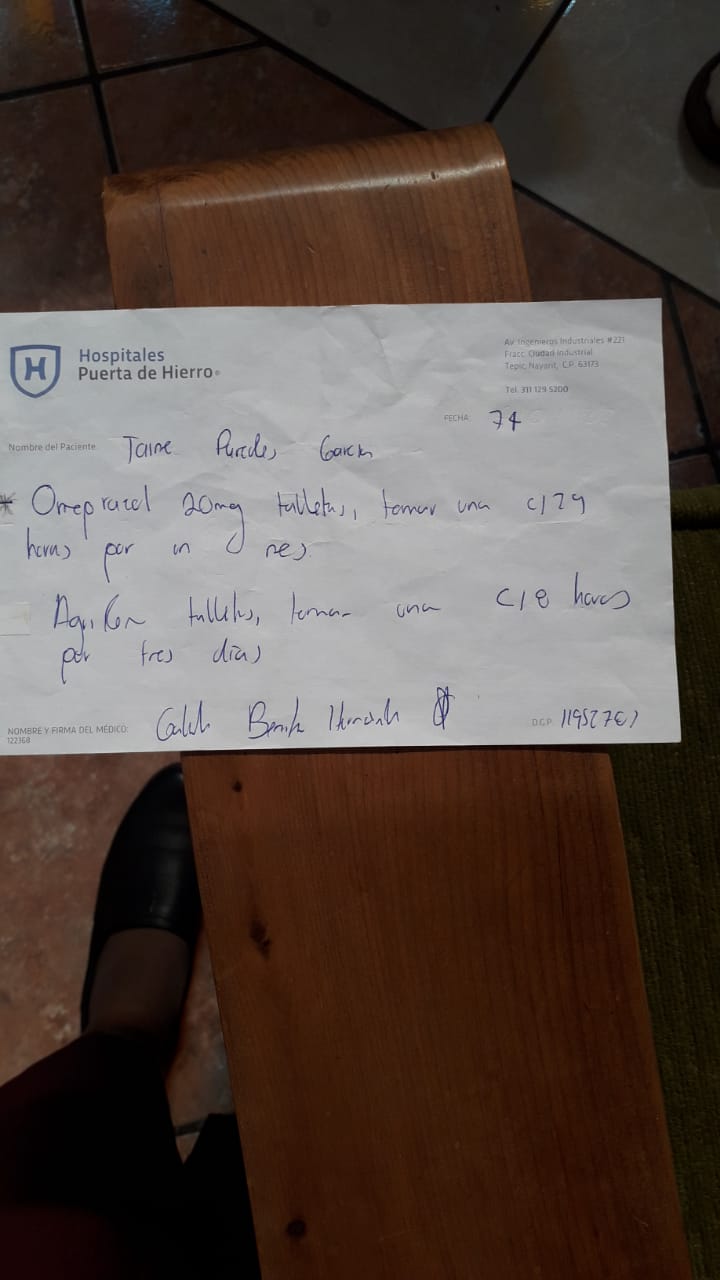 Hospitales
Puerta de Hierro
Av. Ingenieros Industriales #221
Fracc. Ciudad Industrial
Tepic, Nayarit, C.P. 63173
Tel. 311 129 5200
FECHA: 74
Nombre del Paciente: Jaime Paredes García
* Omeprazol 20mg tabletas, tomar una c/24
horas por un mes.
tabletas, tomar una c/8 horas
por tres días
NOMBRE Y FIRMA DEL MÉDICO:
122368
D.G.P.